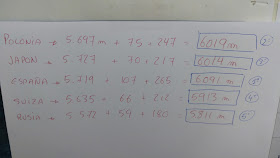 POLONIA → 5.697m + 75 + 247 = 6019 m 2º
JAPON → 5.727 + 70 + 217 = 6014 m 3º
ESPAÑA → 5.719 + 107 + 265 = 6091 m 1º
SUIZA → 5.635 + 66 + 212 = 5913 m 4º
RUSIA → 5.572 + 59 + 180 = 5811 m 5º